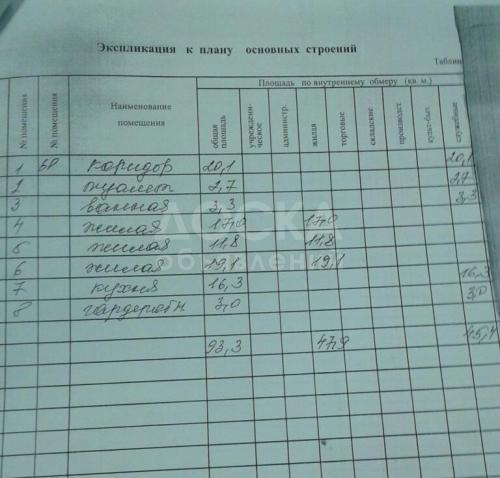 Экспликация к плану основных строений
Таблиц
№ помещения
№ помещения
Наименование
помещения
Площадь по внутреннему обмеру (кв. м.)
общая
площадь
учрежденческое
администр.
жилая
торговые
складские
производст.
культ-быт.
служебные
1 коридор 20,1 20,1
2 туалет 2,7 2,7
3 ванная 3,3 3,3
4 жилая 17,0 17,0
5 жилая 11,8 11,8
6 жилая 19,1 19,1
7 кухня 16,3 16,3
8 гардеробн 3,0 3,0
93,3 47,9 45,4
ДОСКА
объявлений